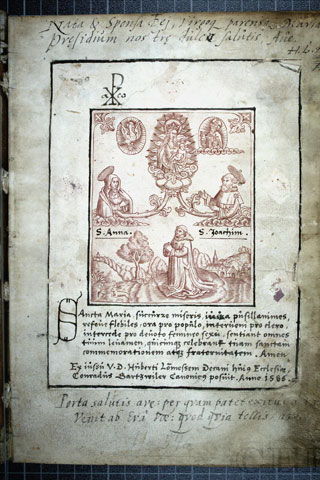 Nata & Sponsa Dei, Virgo, parens Maria
Presidium nostre dulce salutis Ave
S. Anna.
S. Joachim.
Sancta Maria succurre miseris iuua pusillanimes,
refoue flebiles: ora pro populo, interueni pro clero,
intercede pro deuoto femineo sexu, sentiant omnes
tuum leuamen, quicunq celebrant tuam sanctam
commemorationem atq fraternitatem. Amen
Ex iussu V.D. Huberti Decani huius Ecclesiae
Conradus Gartzwiler Canonicus posuit. Anno 1586.
Porta salutis aue: per quam patet
Venit ab Eva Vae: quod quia tollis